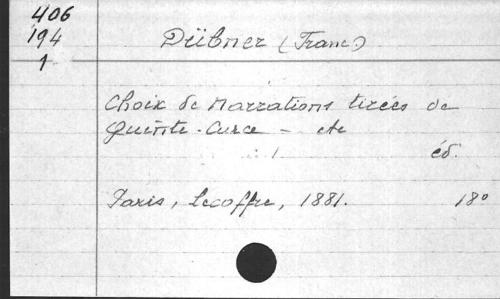 406
194
1
Dübner (Franc)
Choix de Narrations tirées de
Quinte-Curce - etc
éd.
Paris, Lecoffre, 1881. 18°